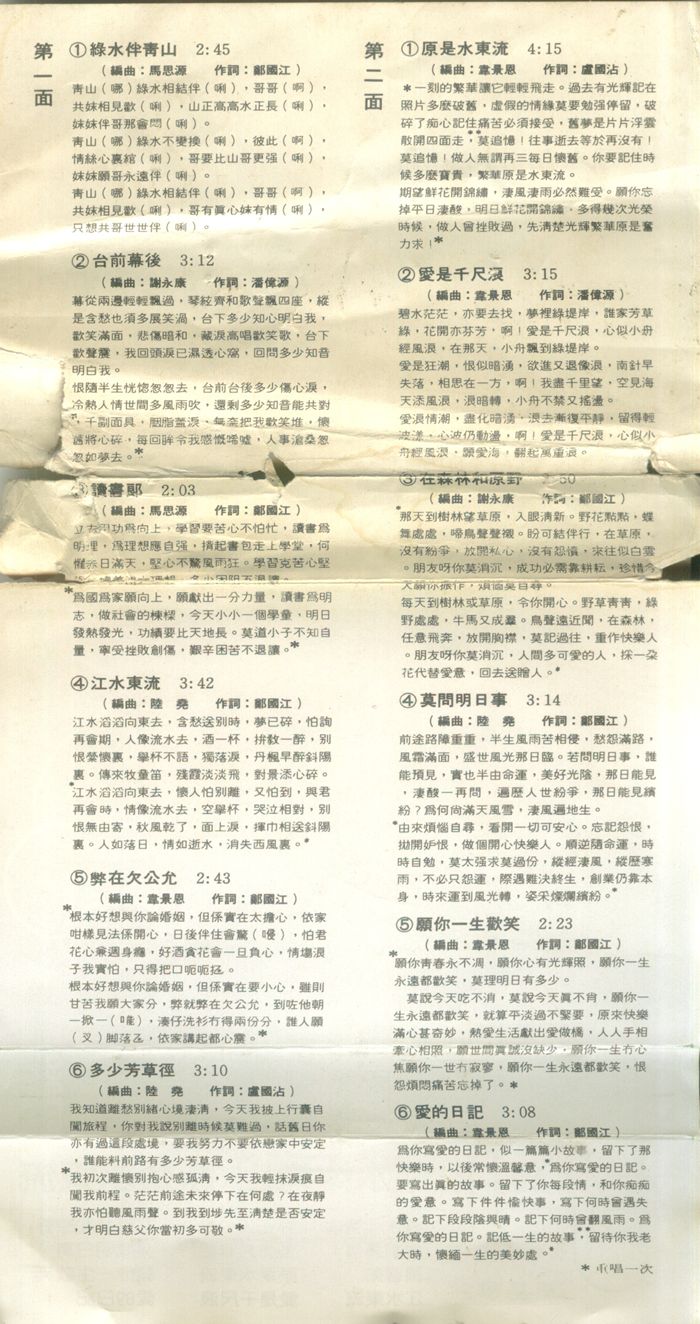 第一面
①綠水伴青山 2:45
（編曲：馬思源 作詞：鄺國江）
青山（哪）綠水相結伴（唎），哥哥（啊），
共妹相見歡（唎），山正高高水正長（唎），
妹妹伴哥那會悶（唎）。
青山（哪）綠水不變換（唎），彼此（啊），
情絲心裏綰（唎），哥要比山哥更强（唎），
妹妹願哥永遠伴（唎）。
青山（哪）綠水相結伴（唎），哥哥（啊），
共妹相見歡（唎），哥有眞心妹有情（唎），
只想共哥世世伴（唎）。
②台前幕後 3:12
（編曲：謝永康 作詞：潘偉源）
幕從兩邊輕輕飄過，琴絃齊和歌聲飄四座，縱
是含愁也須多展笑渦，台下多少知心明白我，
歡笑滿面，悲傷暗和，藏淚高唱歡笑歌，台下
歡聲震，我回頭淚已濕透心窩，回問多少知音
明白我。
恨隨半生恍惚忽忽去，台前台後多少傷心淚，
冷熱人情世間多風雨吹，還剩多少知音能共對
，千副面具，胭脂蓋淚、無奈把我歡笑堆，懷
舊將心碎，每回眸令我感慨唏噓，人事滄桑忽
忽如夢去。*
③讀書郞 2:03
（編曲：馬思源 作詞：鄺國江）
功爲向上，學習要苦心不怕忙，讀書爲
明理，爲理想應自强，揹起書包走上學堂，何
懼 日滿天，堅心不驚風雨狂。學習克苦心堅
*爲國爲家願向上，願獻出一分力量，讀書爲明
志，做社會的棟樑，今天小小一個學童、明日
發熱發光，功績要比天地長。莫道小子不知自
量，寧受挫敗創傷，艱辛困苦不退讓。*
④江水東流 3:42
（編曲：陸 堯 作詞：鄺國江）
江水滔滔向東去，含愁送別時，夢已碎，怕詢
再會期，人像流水去，酒一杯，拚教一醉，別
恨縈懷裏，舉杯不語，獨落淚，丹楓早醉斜陽
裏。傳來牧童笛，殘霞淡淡飛，對景添心碎。
*江水滔滔向東去，懷人怕別離，又怕到，與君
再會時，情像流水去，空舉杯，哭泣相對，別
恨無由寄，秋風乾了，面上淚，揮巾相送斜陽
裏。人如落日，情如逝水，消失西風裏。*
⑤弊在欠公允 2:43
（編曲：韋景恩 作詞：鄺國江）
*根本好想與你論婚姻，但係實在太擔心，依家
咁樣見法係開心，日後伴住會驚（㗳），怕君
花心兼週身癮，好酒貪花會一旦負心，情塲浪
子我實怕，只得把口呃呃㧬。
根本好想與你論婚姻，但係實在要小心，雖則
甘苦我願大家分，弊就弊在欠公允，到咗他朝
一掀一（ ），湊仔洗衫冇得兩份分，誰人願
（ ）脚落 ，依家講起都心震。*
⑥多少芳草徑 3:10
（編曲：陸 堯 作詞：盧國沾）
我知道離愁別緒心境淒淸，今天我披上行囊自
闖旅程，你對我說別離時候莫難過，話舊日你
亦有過這段處境，要我努力不要依戀家中安定
，誰能料前路有多少芳草徑。
*我初次離懷別抱心感孤淸，今天我輕抹淚痕自
闖我前程。茫茫前途未來停下在何處？在夜靜
我亦怕聽風雨聲。到我到埗先至淸楚是否安定
，才明白慈父你當初多可敬。*
第二面
①原是水東流 4:15
（編曲：韋景恩 作詞：盧國沾）
*一刻的繁華讓它輕輕飛走。過去有光輝記在
照片多麼破舊，虛假的情緣莫要勉强停留，破
碎了痴心記住痛苦必須接受，舊夢是片片浮雲
散開四面走，**莫追憶！往事逝去等於再沒有！
莫追憶！做人無謂再三每日懷舊。你要記住時
候多麼寶貴，繁華原是水東流。
期望鮮花開錦繡，淒風淒雨必然難受。願你忘
掉平日淒酸，明日鮮花開錦繡，多得幾次光榮
時候，做人曾挫敗過，先淸楚光輝繁華原是奮
力求！*
②愛是千尺浪 3:15
（編曲：韋景恩 作詞：潘偉源）
碧水茫茫，亦要去找，夢裡綠堤岸，誰家芳草
綠，花開亦芬芳，啊！愛是千尺浪，心似小舟
經風浪，在那天，小舟飄到綠堤岸。
愛是狂潮，恨似暗湧，欲進又退像浪，南針早
失落，相思在一方，啊！我盡千里望，空見海
天添風浪，浪暗轉，小舟不禁又搖盪。
愛浪情潮，盡化暗湧，浪去漸復平靜，留得輕
波漾，心波仍動盪，啊！愛是千尺浪，心似小
舟經風浪，願愛海，翻起萬重浪。
③在森林和原野 50
（編曲：謝永康 作詞：鄺國江）
*那天到樹林望草原，入眼淸新。野花點點，蝶
舞處處，啼鳥聲聲襯。盼可結伴行，在草原，
沒有紛爭，放開私心，沒有怨憤，來往似白雲
。朋友呀你莫消沉，成功必需靠耕耘，珍惜今
天願你振作，煩惱莫自尋。
每天到樹林或草原，令你開心。野草靑靑，綠
野處處，牛馬又成羣。鳥聲遠近聞，在森林，
任意飛奔，放開胸襟，莫記過往，重作快樂人
。朋友呀你莫消沉，人間多可愛的人，採一朶
花代替愛意，回去送贈人。*
④莫問明日事 3:14
（編曲：陸 堯 作詞：鄺國江）
前途路障重重，半生風雨苦相侵，愁怨滿路，
風霜滿面，盛世風光那日臨。若問明日事，誰
能預見，實也半由命運，美好光陰，那日能見
，淒酸一再問，遍歷人世紛爭，那日能見繽
紛？爲何尙滿天風雪，淒風遍地生。
*由來煩惱自尋，看開一切可安心。忘記怨恨，
拋開妒恨，做個開心快樂人。順逆隨命運，時
時自勉，莫太强求莫過份，縱經淒風，縱歷寒
雨，不必只怨運，際遇難決終生，創業仍靠本
身，時來運到風光轉，姿采燦爛繽紛。*
⑤願你一生歡笑 2:23
（編曲：韋景恩 作詞：鄺國江）
*願你靑春永不凋，願你心有光輝照，願你一生
永遠都歡笑，莫理明日有多少。
莫說今天吃不消，莫說今天眞不肖，願你一
生永遠都歡笑，就算平淡過不緊要，原來快樂
滿心甚奇妙，熱愛生活獻出愛做橋，人人手相
牽心相照，願世間眞誠沒缺少，願你一生冇心
焦願你一世冇寂寥，願你一生永遠都歡笑，恨
怨煩悶痛苦忘掉了。*
⑥愛的日記 3:08
（編曲：韋景恩 作詞：鄺國江）
爲你寫愛的日記，似一篇篇小故事，留下了那
快樂時，以後常懷溫馨意，*爲你寫愛的日記。
要寫出眞的故事。留下了你每段情，和你痴痴
的愛意。寫下件件愉快事，寫下何時曾遇失
意。記下段段陰與晴。記下何時曾翻風雨。爲
你寫愛的日記。記低一生的故事，**留待你我老
大時，懷緬一生的美妙處。*
*重唱一次